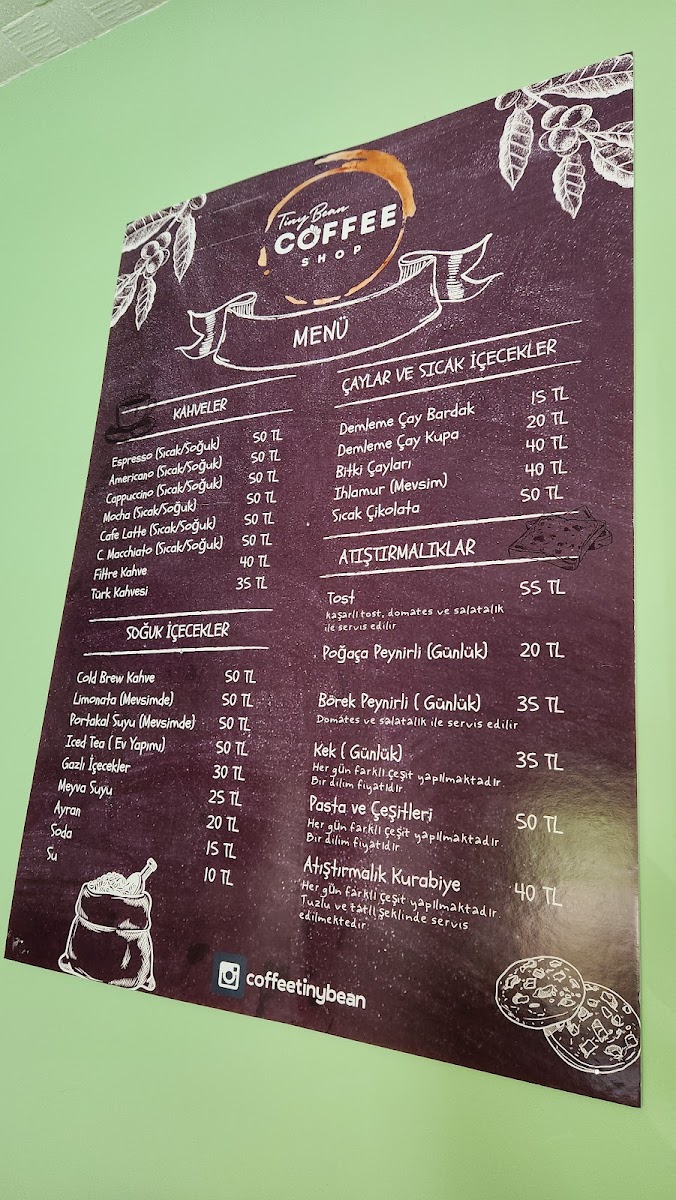 Tiny Bean
COFFEE
SHOP
MENÜ
KAHVELER
Espresso (Sıcak/Soğuk) 50 TL
Americano (Sıcak/Soğuk) 50 TL
Cappuccino (Sıcak/Soğuk) 50 TL
Mocha (Sıcak/Soğuk) 50 TL
Cafe Latte (Sıcak/Soğuk) 50 TL
C. Macchiato (Sıcak/Soğuk) 50 TL
Filtre Kahve 40 TL
Türk Kahvesi 35 TL
SOĞUK İÇECEKLER
Cold Brew Kahve 50 TL
Limonata (Mevsimde) 50 TL
Portakal Suyu (Mevsimde) 50 TL
Iced Tea ( Ev Yapımı) 50 TL
Gazlı İçecekler 30 TL
Meyva Suyu 25 TL
Ayran 20 TL
Soda 15 TL
Su 10 TL
ÇAYLAR VE SICAK İÇECEKLER
Demleme Çay Bardak 15 TL
Demleme Çay Kupa 20 TL
Bitki Çayları 40 TL
Ihlamur (Mevsim) 40 TL
Sıcak Çikolata 50 TL
ATIŞTIRMALIKLAR
Tost 55 TL
kaşarlı tost, domates ve salatalık
ile servis edilir
Poğaça Peynirli (Günlük) 20 TL
Börek Peynirli ( Günlük) 35 TL
Domates ve salatalık ile servis edilir
Kek ( Günlük) 35 TL
Her gün farklı çeşit yapılmaktadır.
Bir dilim fiyatıdır.
Pasta ve Çeşitleri 50 TL
Her gün farklı çeşit yapılmaktadır.
Bir dilim fiyatıdır.
Atıştırmalık Kurabiye 40 TL
Her gün farklı çeşit yapılmaktadır.
Tuzlu ve tatlı şeklinde servis
edilmektedir.
coffeetinybean